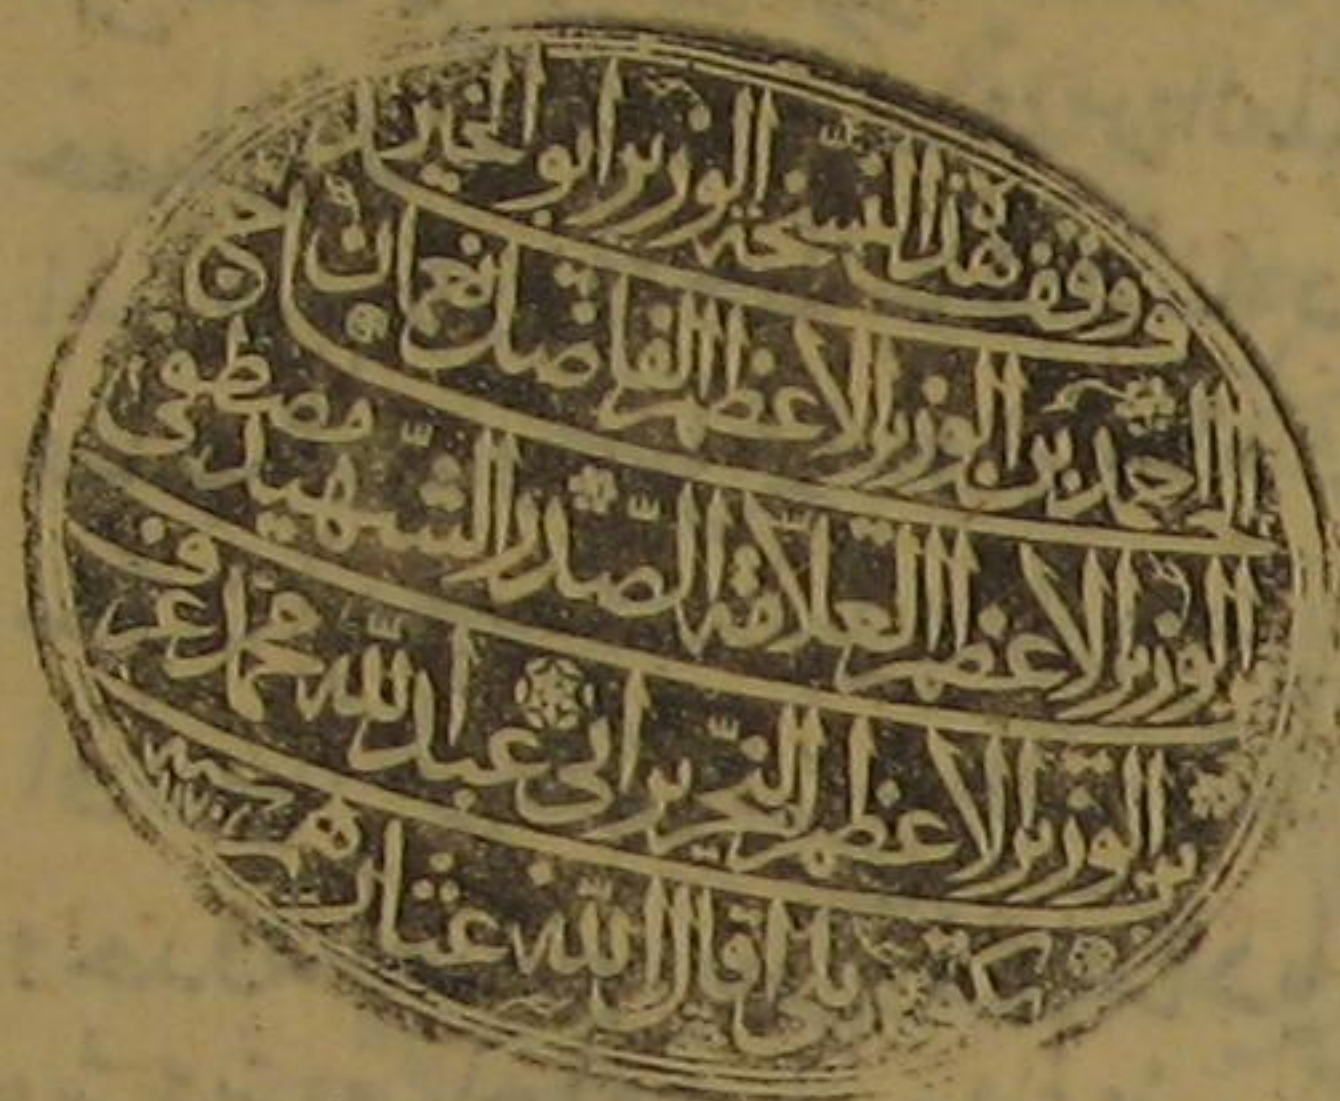 ووقف هذه النسخة الوزير ابو الخير
الحاج احمد بن الوزير الاعظم الفاضل نعمان بن
الوزير الاعظم العلامة الصدر الشهيد مصطفى
بن الوزير الاعظم النحرير ابى عبد الله محمد عرف
بكوپريلى اقال الله عثارهم